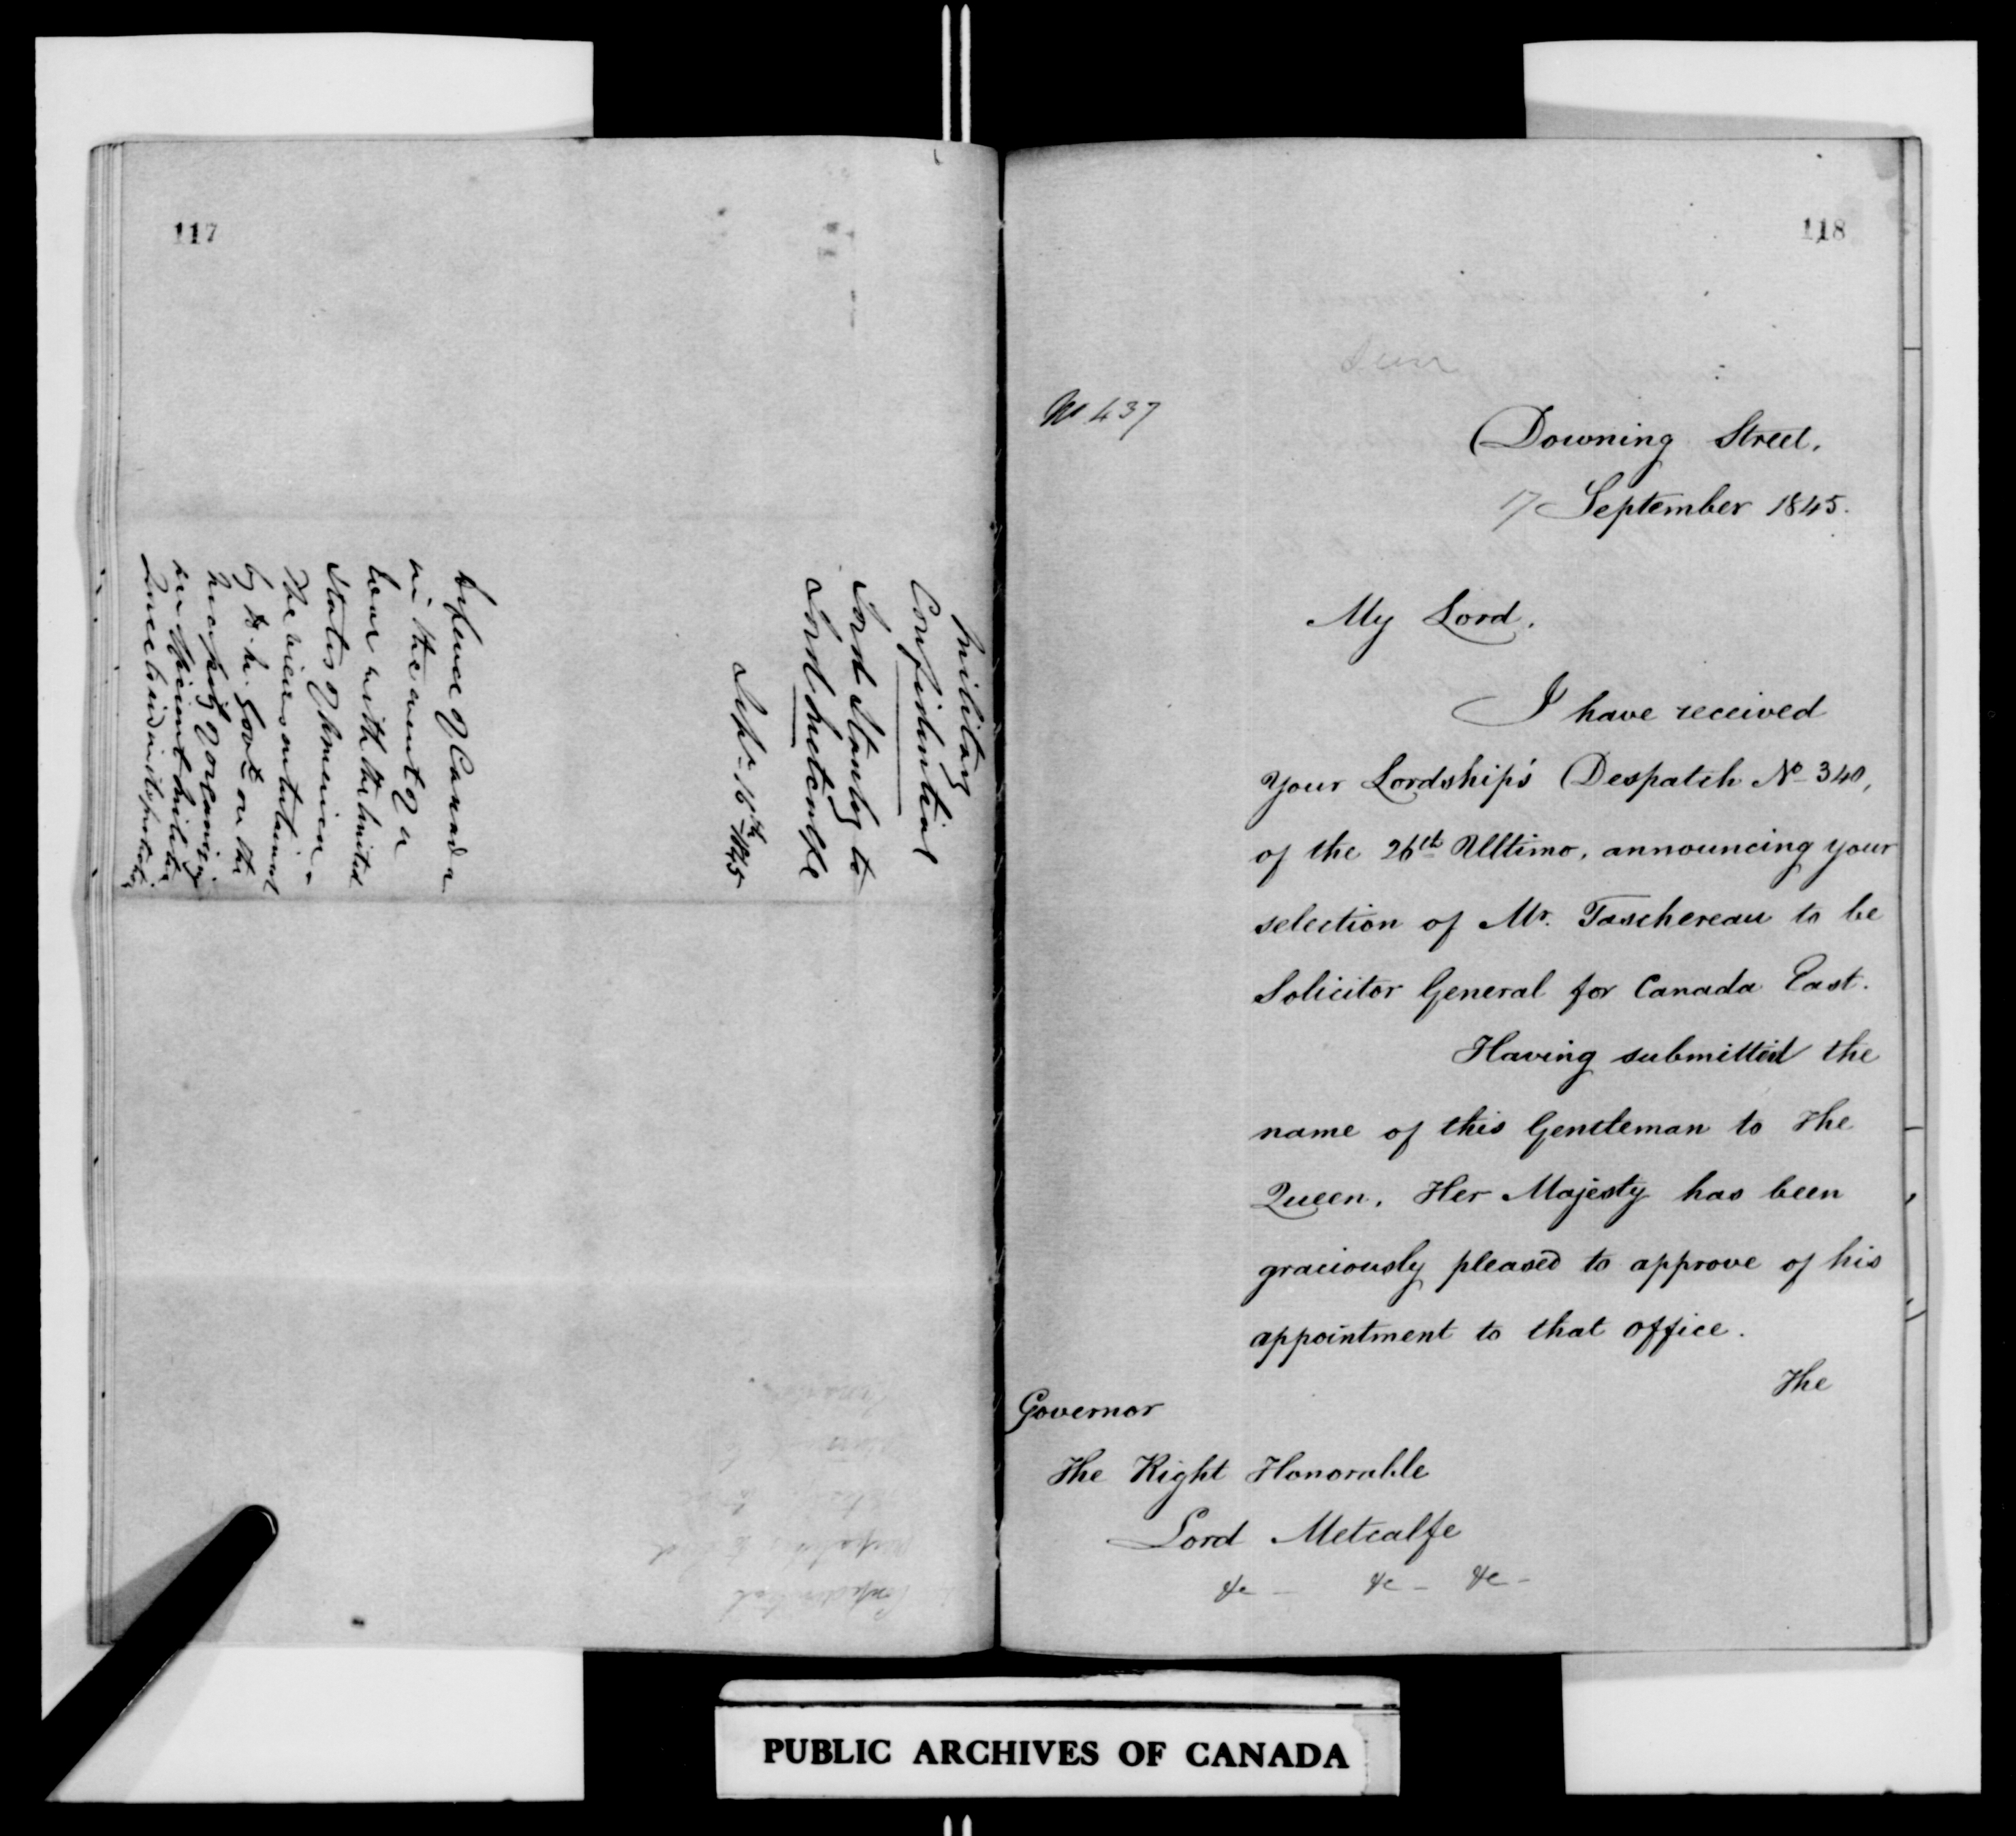 117
Military
Confidential
Lord Stanley to
Lord Metcalfe
Septr 16th 1845
Defence of Canada
in the event of a
war with the United
States of America -
The views entertained
by H. M. Govt on the
necessity of organising
an efficient militia
118
No 437
Downing Street.
17 September 1845.
My Lord.
I have received
your Lordship's Despatch No 340,
of the 26th Ultimo, announcing your
selection of Mr. Taschereau to be
Solicitor General for Canada East.
Having submitted the
name of this Gentleman to The
Queen, Her Majesty has been
graciously pleased to approve of his
appointment to that office.
The
Governor
The Right Honorable
Lord Metcalfe
&c - &c - &c -
PUBLIC ARCHIVES OF CANADA